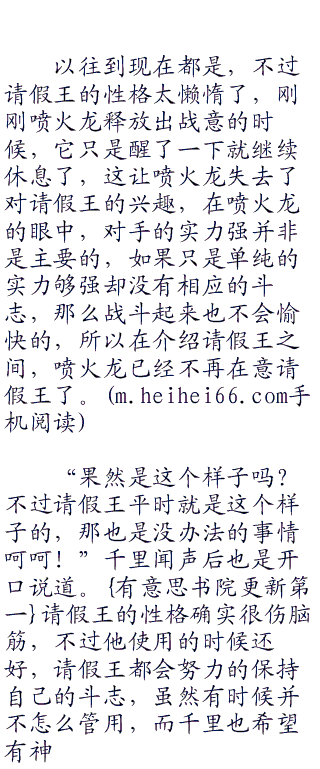 以往到现在都是，不过
请假王的性格太懒惰了，刚
刚喷火龙释放出战意的时
候，它只是醒了一下就继续
休息了，这让喷火龙失去了
对请假王的兴趣，在喷火龙
的眼中，对手的实力强并非
是主要的，如果只是单纯的
实力够强却没有相应的斗
志，那么战斗起来也不会愉
快的，所以在介绍请假王之
间，喷火龙已经不再在意请
假王了。(m.heihei66.com手
机阅读)
“果然是这个样子吗？
不过请假王平时就是这个样
子的，那也是没办法的事情
呵呵！”千里闻声后也是开
口说道。{有意思书院更新第
一}请假王的性格确实很伤脑
筋，不过他使用的时候还
好，请假王都会努力的保持
自己的斗志，虽然有时候并
不怎么管用，而千里也希望
有神